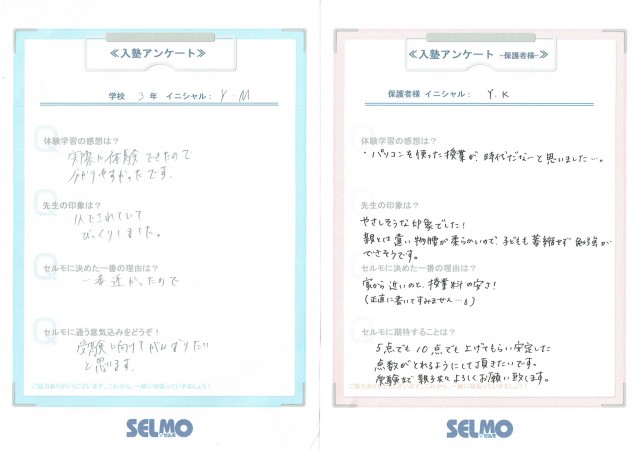 ≪入塾アンケート≫
学校 3年 イニシャル： Y・M
体験学習の感想は？
実際に体験できたので
分かりやすかったです。
先生の印象は？
びっくりしました。
セルモに決めた一番の理由は？
一番近かったので
セルモに通う意気込みをどうぞ！
受験に向けてがんばりたい
と思います。
ご協力ありがとうございます。これから、一緒に頑張っていきましょう！
SELMO
セルモ
≪入塾アンケート －保護者様－≫
保護者様 イニシャル： Y.K
体験学習の感想は？
・パソコンを使った授業が、時代だなーと思いました…。
先生の印象は？
やさしそうな印象でした！
親とは違い物腰が柔らかいので、子どもも萎縮せず勉強が
できそうです。
セルモに決めた一番の理由は？
家から近いのと、授業料の安さ！
(正直に書いてすみません…。)
セルモに期待することは？
5点でも10点でも上げてもらい安定した
点数がとれるようにして頂きたいです。
受験まで親子共々よろしくお願い致します。
ご協力ありがとうございます。これから、一緒に頑張っていきましょう！
SELMO
セルモ